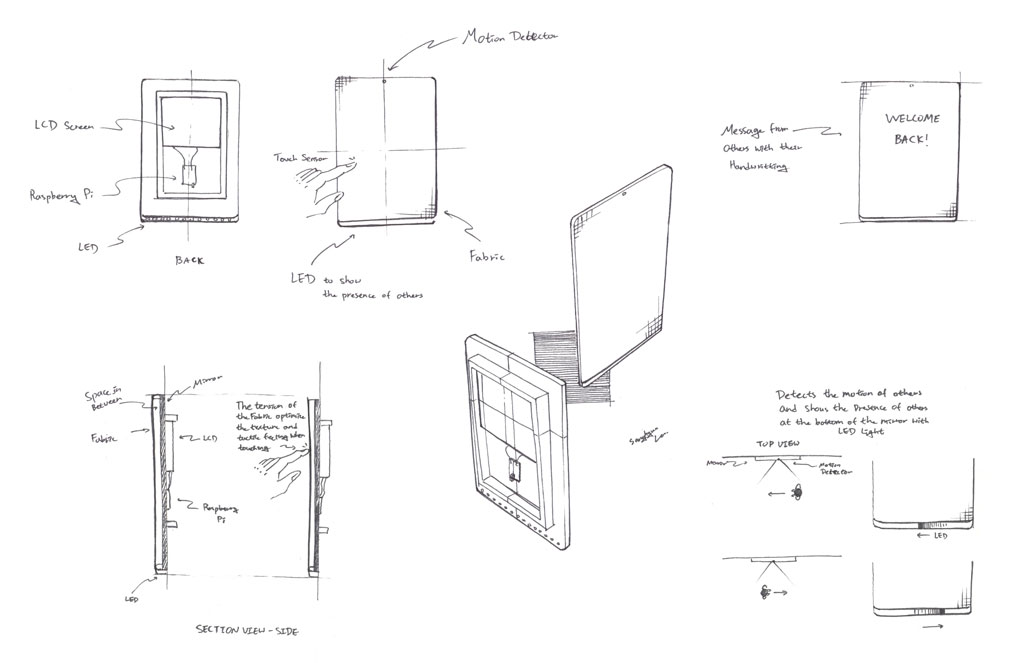 Motion Detector
LCD Screen
Raspberry Pi
LED
BACK
Touch Sensor
Fabric
LED to show
the presence of others
Message from
others with their
Handwritting
WELCOME
BACK!
Space in
Between
Mirror
Fabric
LCD
Raspberry
Pi
LED
The tension of
the Fabric optimize
the texture and
tactile feeling when
touching
SECTION VIEW - SIDE
Detects the motion of others
and shows the Presence of others
at the bottom of the mirror with
LED Light
TOP VIEW
Mirror
Motion
Detector
LED